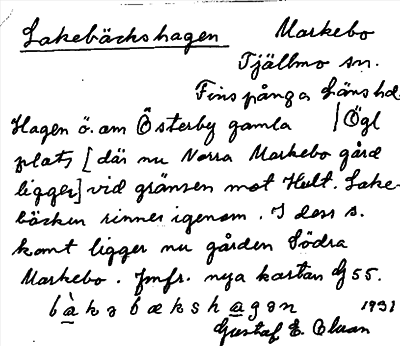 Lakebäckshagen Markebo
Tjällmo sn.
Finspånga Länshd
Hagen ö. om Österby gamla /Ögl
plats [där nu Norra Markebo gård
ligger] vid gränsen mot Hult. Lake-
bäcken rinner igenom. I dess s.
kant ligger nu gården Södra
Markebo. Jmfr. nya kartan G 55.
1931
Gustaf E. Bluan